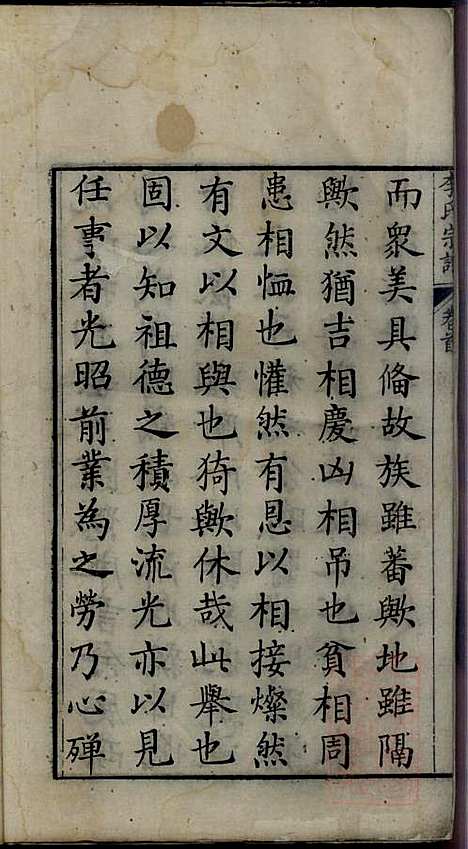 李氏宗譜
卷首
而衆美具備故族雖蕃歟地雖隔
歟然猶吉相慶凶相吊也貧相周
患相恤也懽然有恩以相接燦然
有文以相與也猗歟休哉此舉也
固以知祖德之積厚流光亦以見
任事者光昭前業為之勞乃心殫